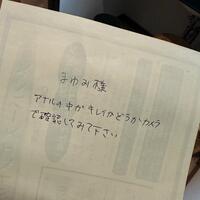 まゆみ様
アナルの中がキレイかどうかカメラ
で確認してみて下さい